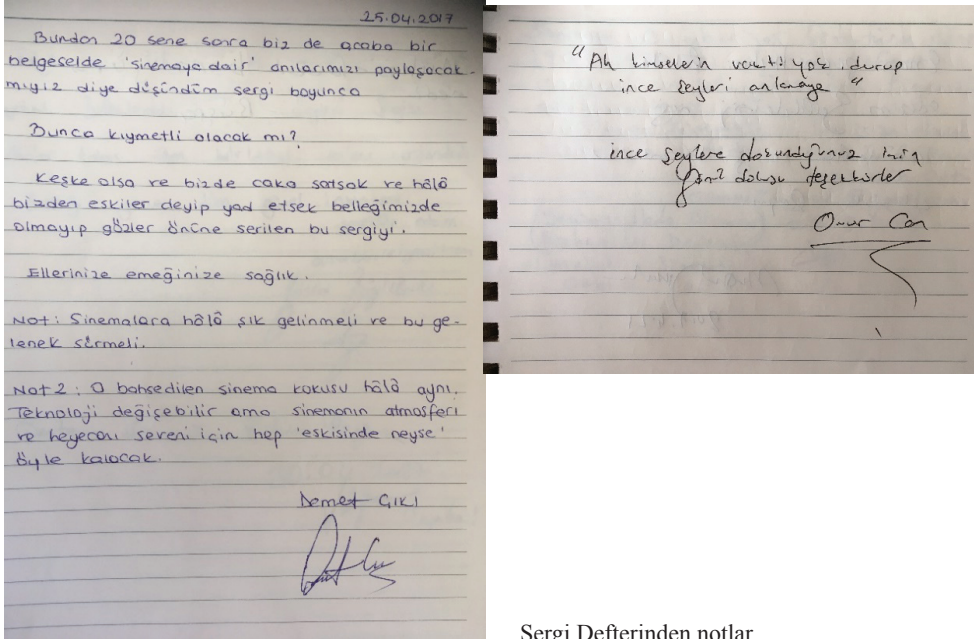 25.04.2017
Bundan 20 sene sonra biz de acaba bir
belgeselde 'sinemaya dair' anılarımızı paylaşacak-
mıyız diye düşündüm sergi boyunca
Bunca kıymetli olacak mı?
Keşke olsa ve bizde caka satsak ve hâlâ
bizden eskiler deyip yad etsek belleğimizde
olmayıp gözler önüne serilen bu sergiyi.
Ellerinize emeğinize sağlık.
Not: Sinemalara hâlâ sık gelinmeli ve bu ge-
lenek sürmeli.
Not2: O bahsedilen sinema kokusu hâlâ aynı.
Teknoloji değişebilir ama sinemanın atmosferi
ve heyecanı seveni için hep 'eskisinde neyse'
öyle kalacak.
Demet ÇIKI
"Ah kimselerin vakti yok durup
ince şeyleri anlamaya"
ince şeylere dokunduğunuz için
gönül dolusu teşekkürler
Onur Can
Sergi Defterinden notlar